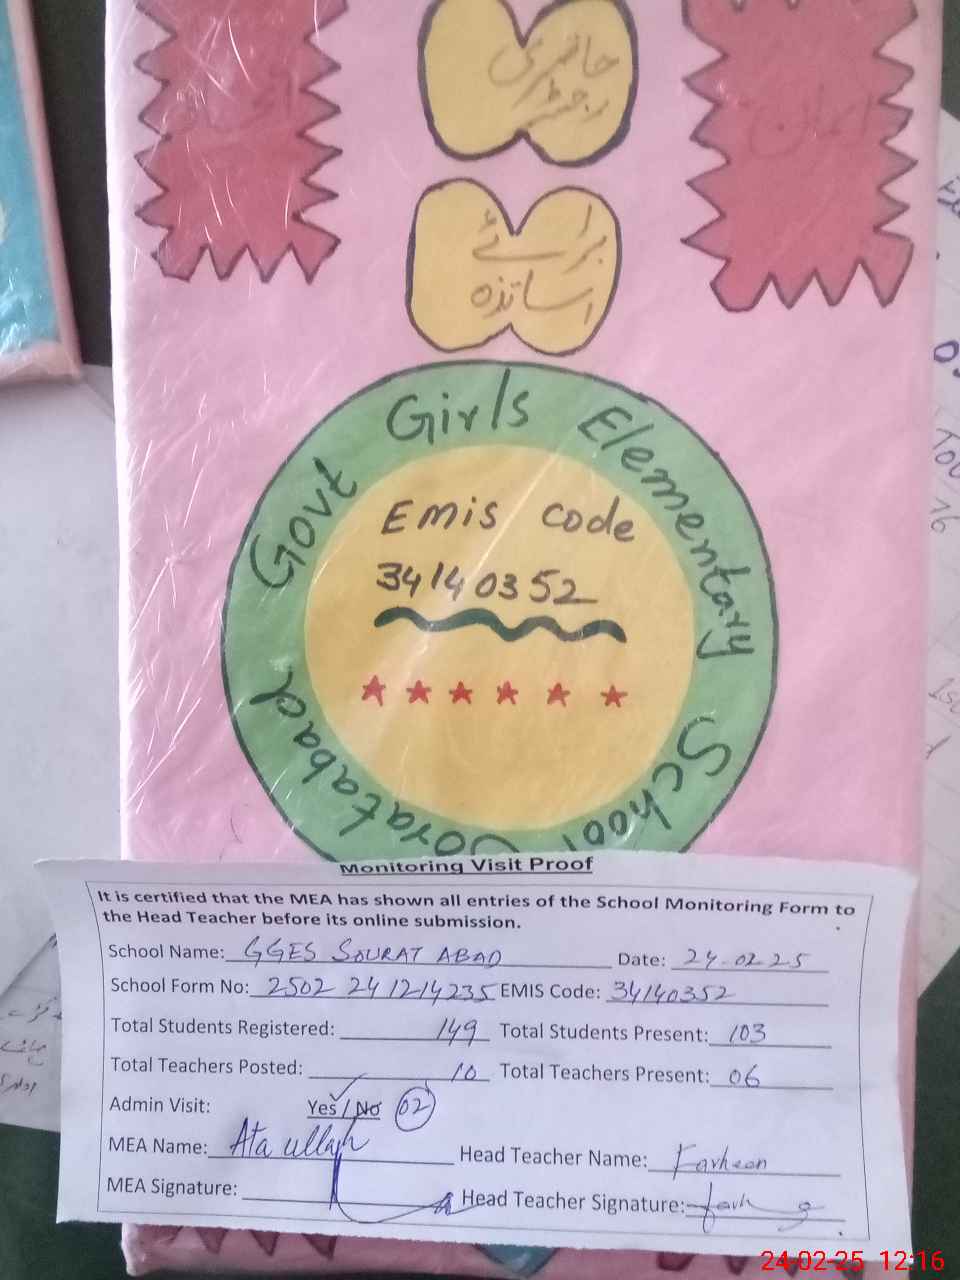 حاضری
رجسٹر
ایمان
برائے
اساتذہ
Govt Girls Elementary School Soratabad
Emis code
34140352
Monitoring Visit Proof
It is certified that the MEA has shown all entries of the School Monitoring Form to
the Head Teacher before its online submission.
School Name: GGES SOURAT ABAD Date: 24-02-25
School Form No: 2502 24 1214235 EMIS Code: 34140352
Total Students Registered: 149 Total Students Present: 103
Total Teachers Posted: 10 Total Teachers Present: 06
Admin Visit: Yes / No 02
MEA Name: Ata ullah Head Teacher Name: Farheen
MEA Signature: Head Teacher Signature:
24-02-25 12:16